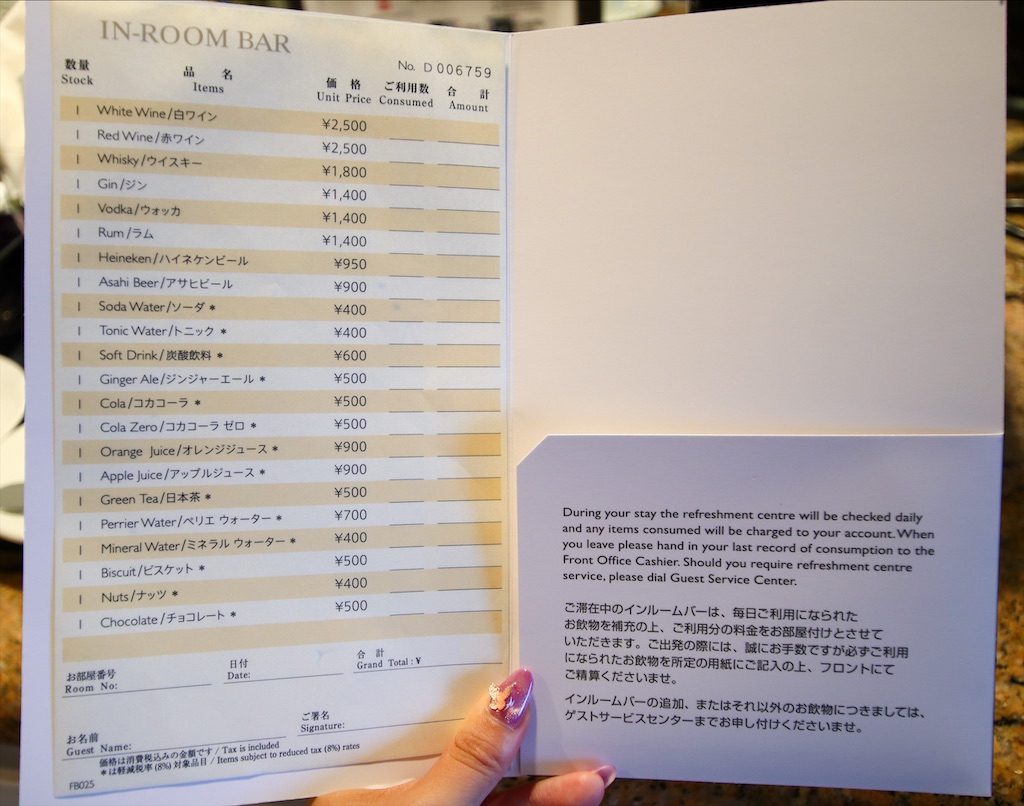 IN-ROOM BAR
No. D 006759
数量 品 名 価 格 ご利用数 合 計
Stock Items Unit Price Consumed Amount
1 White Wine/白ワイン ¥2,500
1 Red Wine/赤ワイン ¥2,500
1 Whisky/ウイスキー ¥1,800
1 Gin/ジン ¥1,400
1 Vodka/ウォッカ ¥1,400
1 Rum/ラム ¥1,400
1 Heineken/ハイネケンビール ¥950
1 Asahi Beer/アサヒビール ¥900
1 Soda Water/ソーダ * ¥400
1 Tonic Water/トニック * ¥400
1 Soft Drink/炭酸飲料 * ¥600
1 Ginger Ale/ジンジャーエール * ¥500
1 Cola/コカコーラ * ¥500
1 Cola Zero/コカコーラ ゼロ * ¥500
1 Orange Juice/オレンジジュース * ¥900
1 Apple Juice/アップルジュース * ¥900
1 Green Tea/日本茶 * ¥500
1 Perrier Water/ペリエ ウォーター * ¥700
1 Mineral Water/ミネラル ウォーター * ¥400
1 Biscuit/ビスケット * ¥500
1 Nuts/ナッツ * ¥400
1 Chocolate/チョコレート * ¥500
お部屋番号 日付 合 計
Room No: Date: Grand Total : ¥
お名前 ご署名
Guest Name: Signature:
価格は消費税込みの金額です / Tax is included
*は軽減税率 (8%) 対象品目 / Items subject to reduced tax (8%) rates
FB025
During your stay the refreshment centre will be checked daily
and any items consumed will be charged to your account. When
you leave please hand in your last record of consumption to the
Front Office Cashier. Should you require refreshment centre
service, please dial Guest Service Center.
ご滞在中のインルームバーは、毎日ご利用になられた
お飲物を補充の上、ご利用分の料金をお部屋付けとさせて
いただきます。ご出発の際には、誠にお手数ですが必ずご利用
になられたお飲物を所定の用紙にご記入の上、フロントにて
ご精算くださいませ。
インルームバーの追加、またはそれ以外のお飲物につきましては、
ゲストサービスセンターまでお申し付けくださいませ。